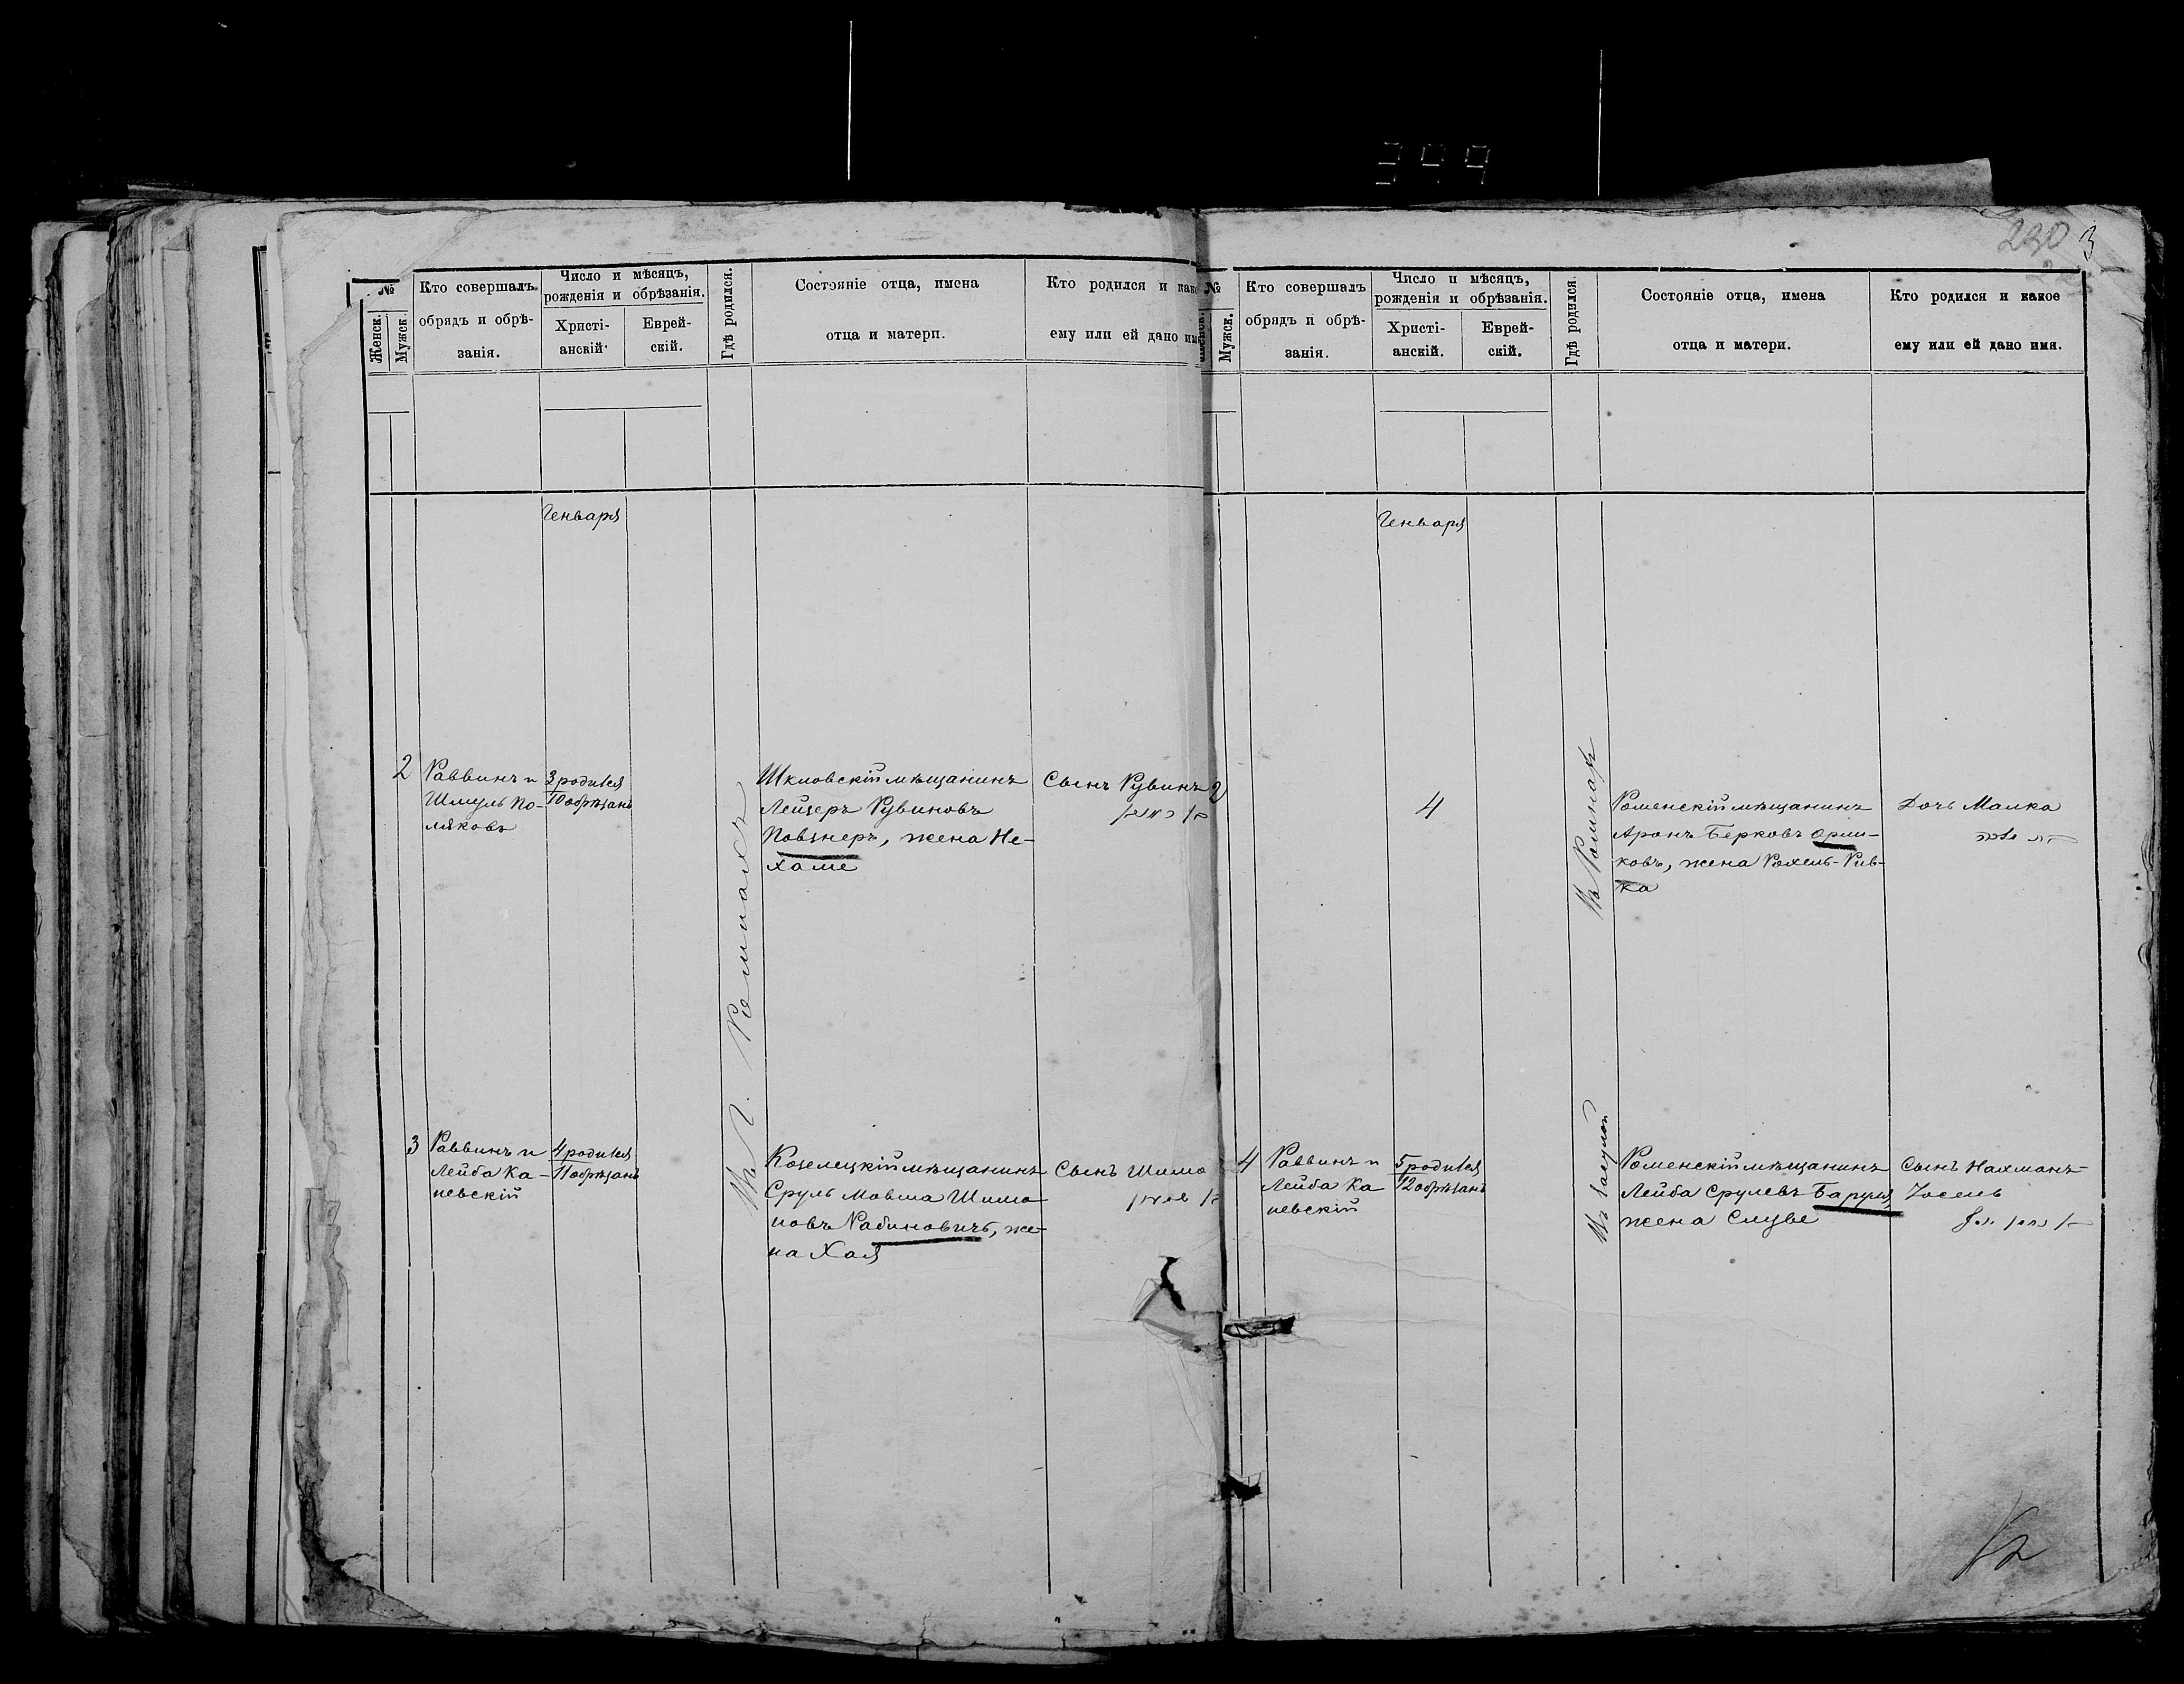 230 3
№
Женск.
Мужск.
Кто совершалъ
обрядъ и обрѣ-
занія.
Число и мѣсяцъ,
рожденія и обрѣзанія.
Христі-
анскій.
Еврей-
скій.
Гдѣ родился.
Состояніе отца, имена
отца и матери.
Кто родился и како
ему или ей дано им
Генваря
2
Раввинъ и
Шмуль По-
ляковъ
3 родился
10 обрѣзанъ
Въ Г. Ромнахъ
Шкловскій мѣщанинъ
Лейзеръ Рувиновъ
Повзнеръ, жена Не-
хаме
Сынъ Рувинъ
בן ראובן
3
Раввинъ и
Лейба Ка-
невскій
4 родился
11 обрѣзанъ
Козелецкій мѣщанинъ
Сруль Мовша Шимо
новъ Рабиновичъ, же-
на Хая
Сынъ Шимо
בן שמעון
№
Мужск.
Кто совершалъ
обрядъ и обрѣ-
занія.
Число и мѣсяцъ,
рожденія и обрѣзанія.
Христі-
анскій.
Еврей-
скій.
Гдѣ родился.
Состояніе отца, имена
отца и матери.
Кто родился и какое
ему или ей дано имя.
Генваря
2
4
Въ Ромнах
Роменскій мѣщанинъ
Аронъ Берковъ
ковъ, жена Рохель-Рив-
ка
Дочь Малка
בת מלכה
4
Раввинъ и
Лейба Ка
невскій
5 родился
12 обрѣзанъ
Въ
Роменскій мѣщанинъ
Лейба Срулевъ
жена Слуве
Сынъ Нахманъ-
Іосель
בן נחמן יוסל